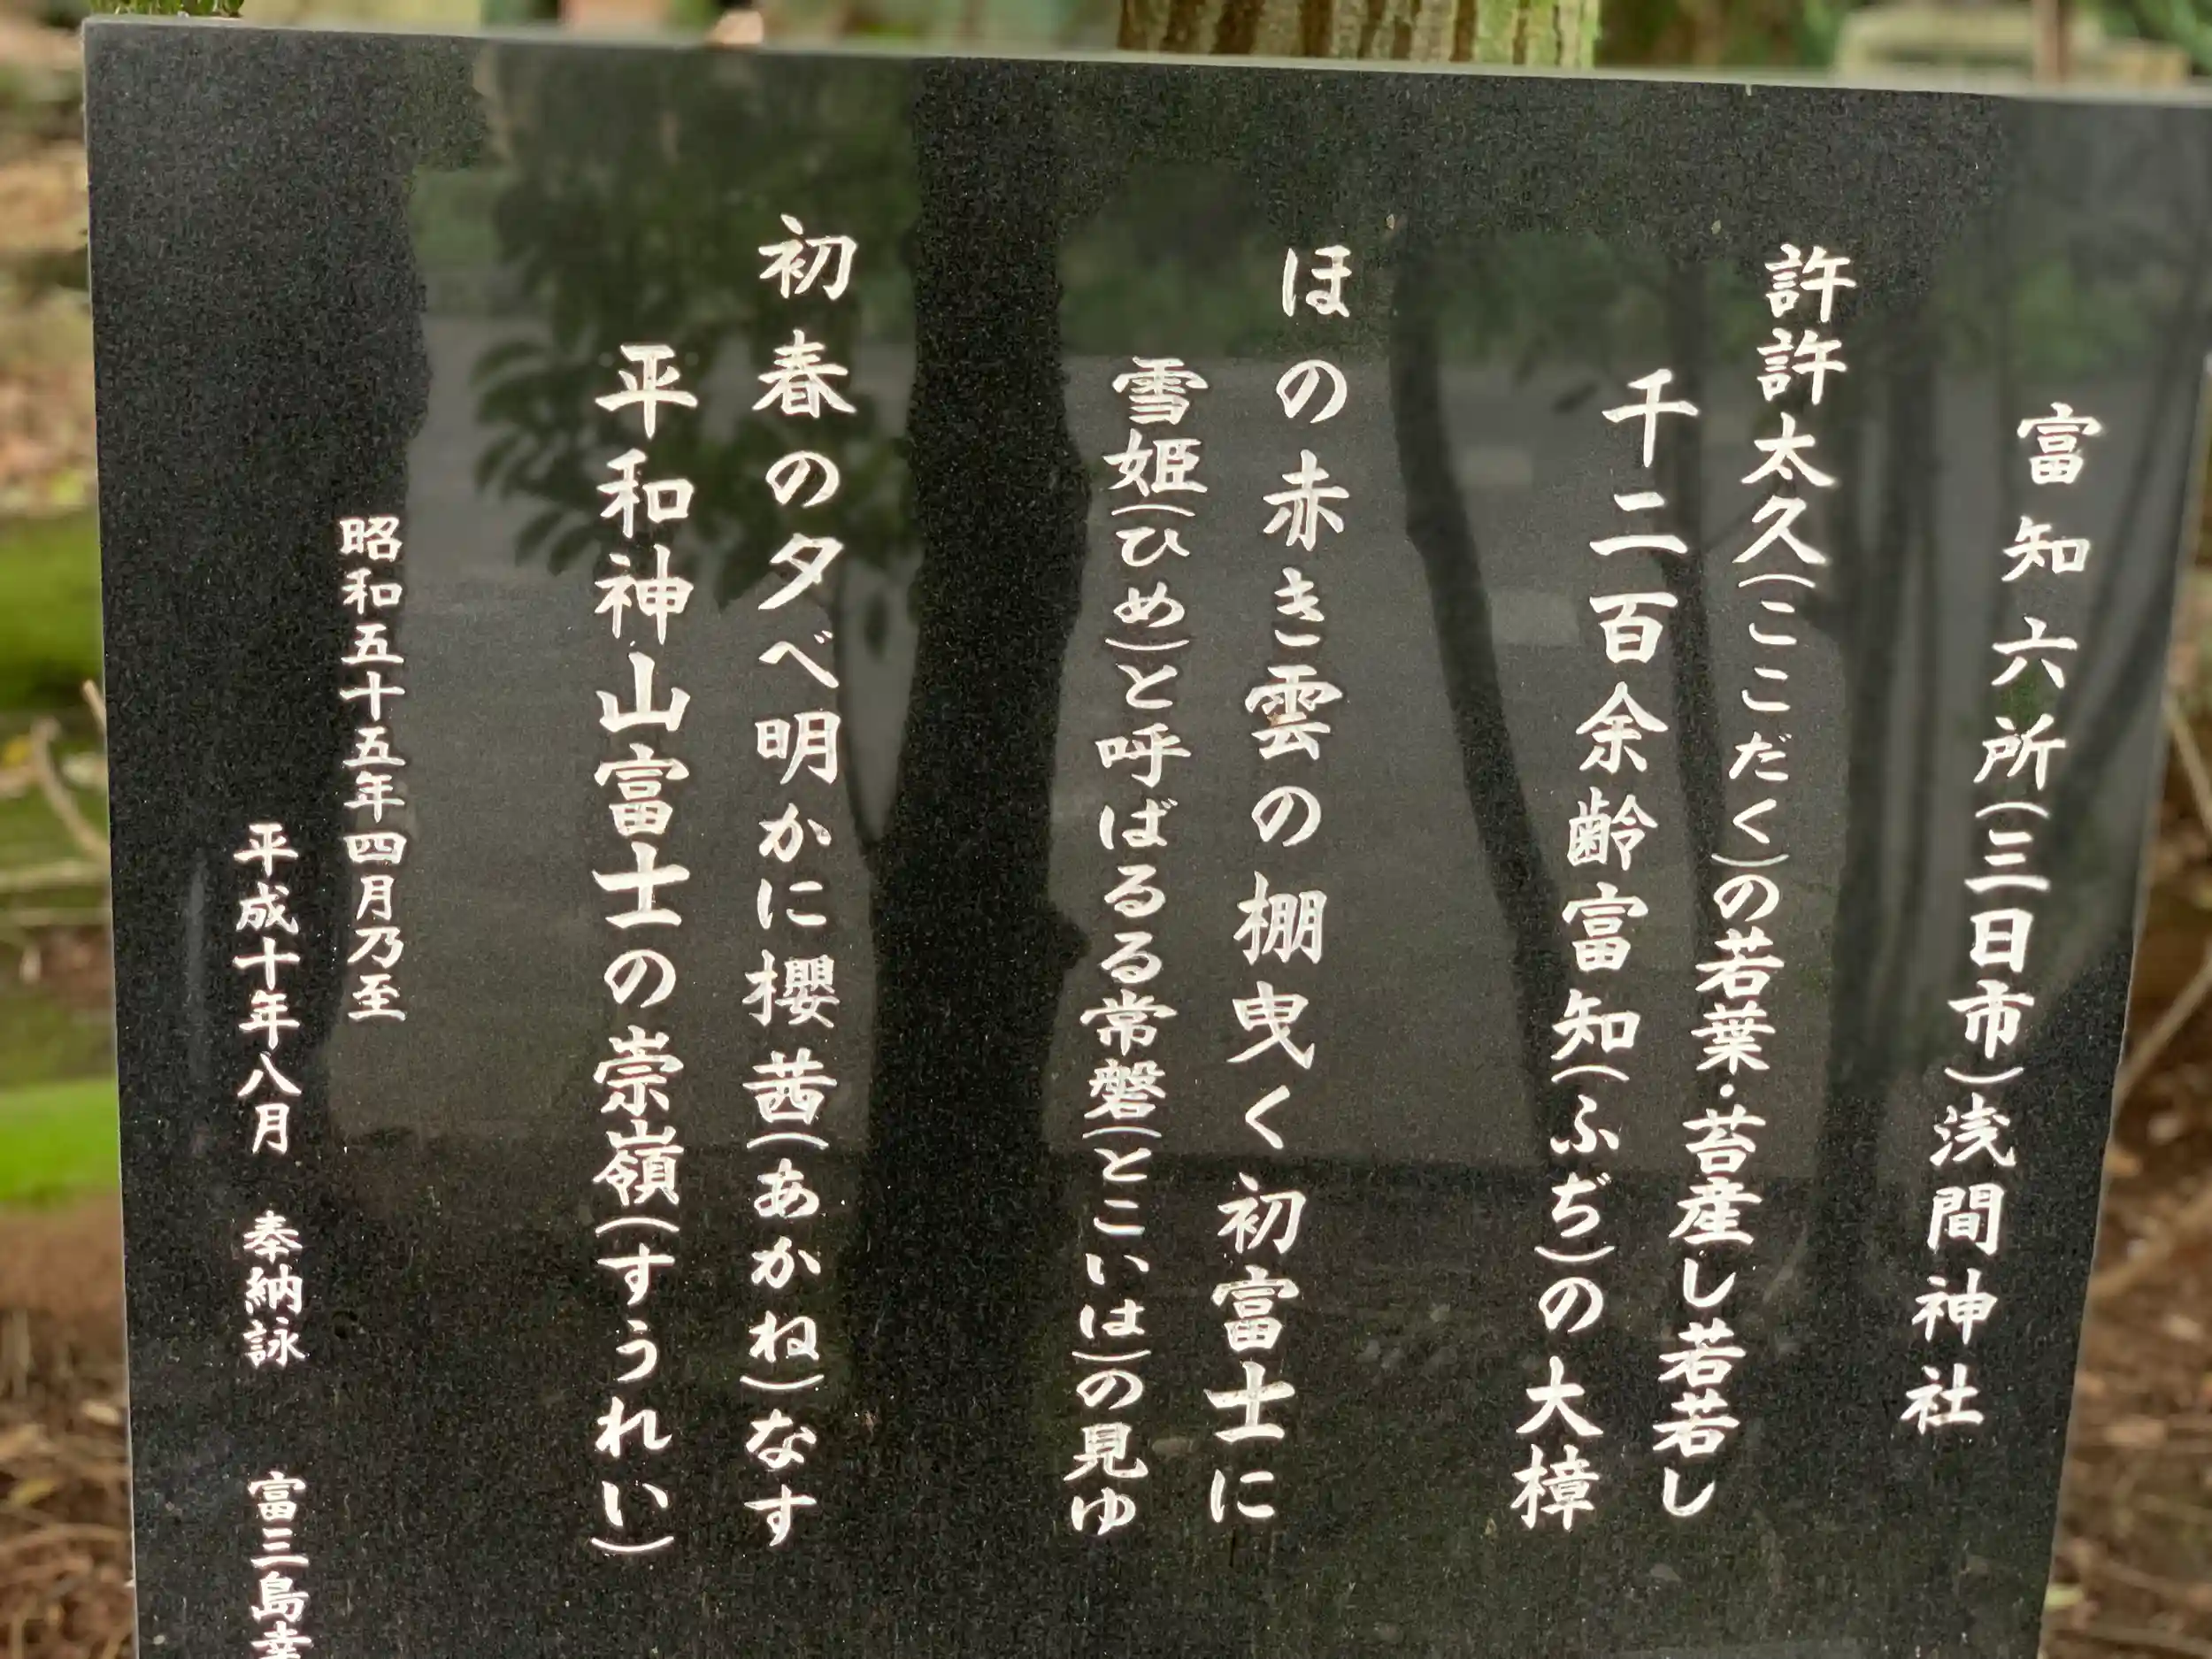 富知六所(三日市)浅間神社
許許太久(ここだく)の若葉・苔産し若若し
千二百余齢富知(ふぢ)の大樟
ほの赤き雲の棚曳く初富士に
雪姫(ひめ)と呼ばるる常磐(とこいは)の見ゆ
初春の夕べ明かに櫻茜(あかね)なす
平和神山富士の崇嶺(すうれい)
昭和五十五年四月乃至
平成十年八月 奉納詠 富三島幸